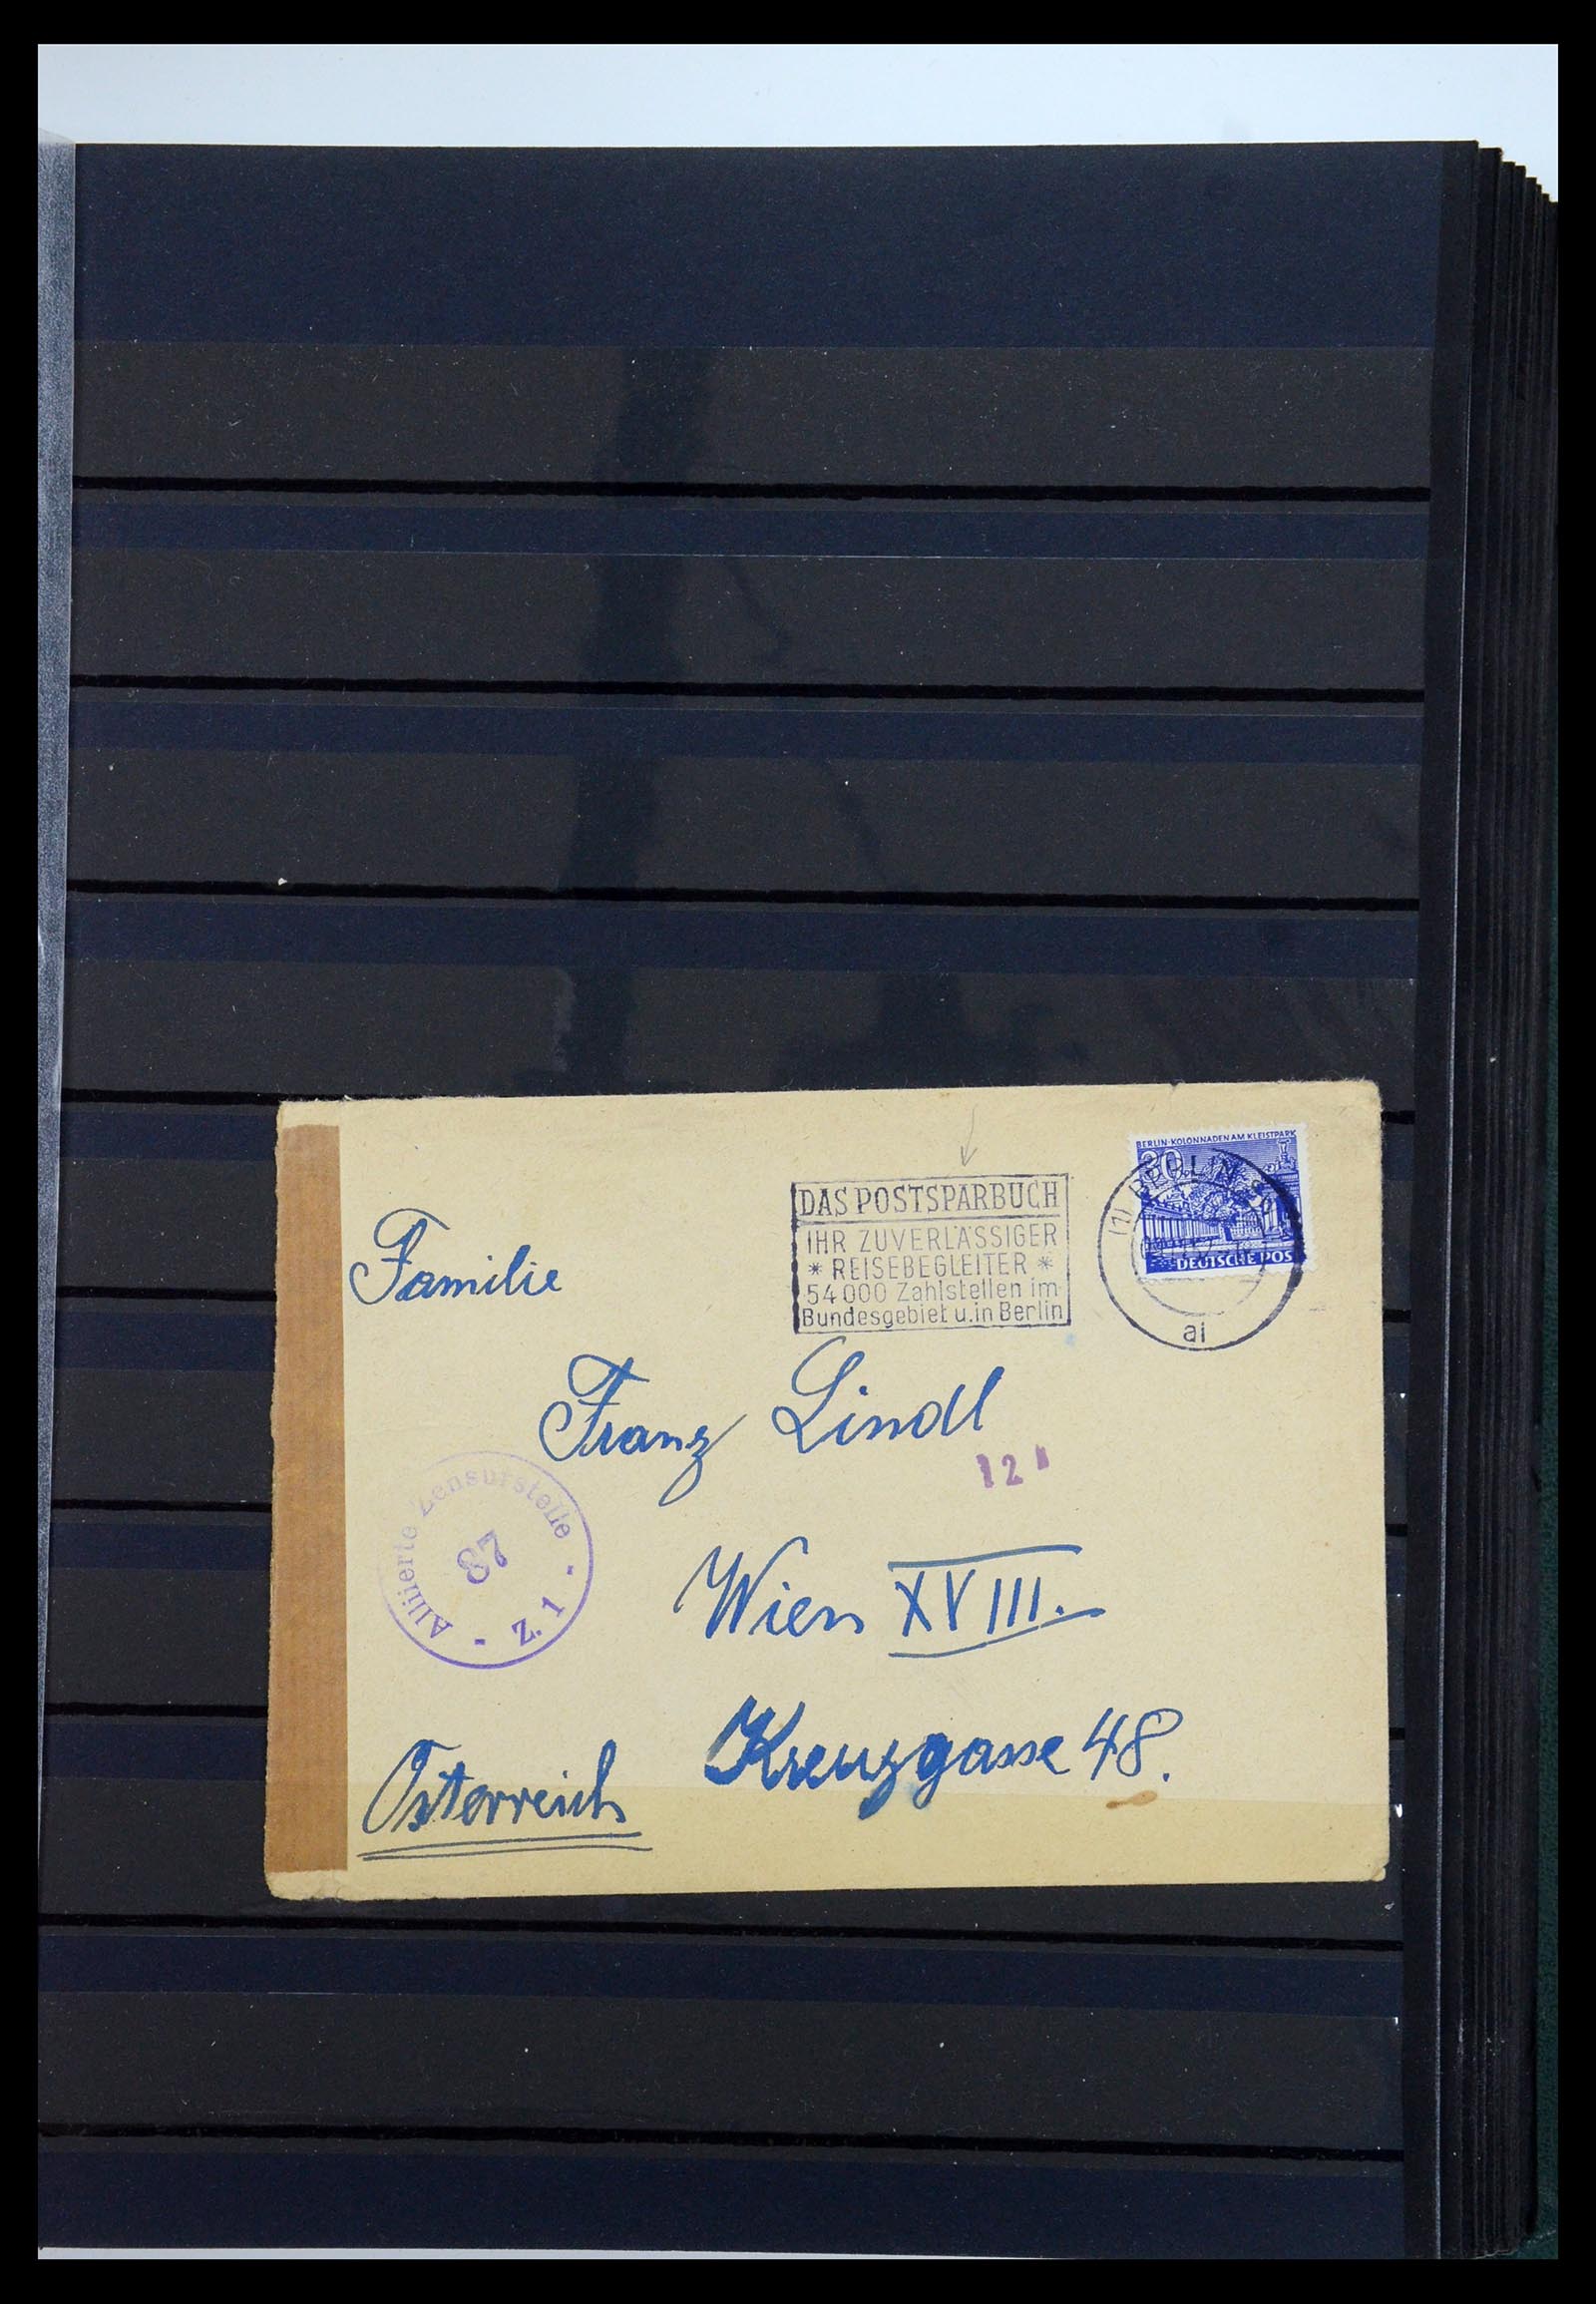 BERLIN-KOLONNADEN AM KLEISTPARK
30
DEUTSCHE POST
(1) BERLIN
ai
DAS POSTSPARBUCH
IHR ZUVERLÄSSIGER
* REISEBEGLEITER *
54000 Zahlstellen im
Bundesgebiet u. in Berlin
Familie
Franz Lindl
12
Alliierte Zensurstelle
87
Z. 1
Wien XVIII.
Kreuzgasse 48.
Österreich